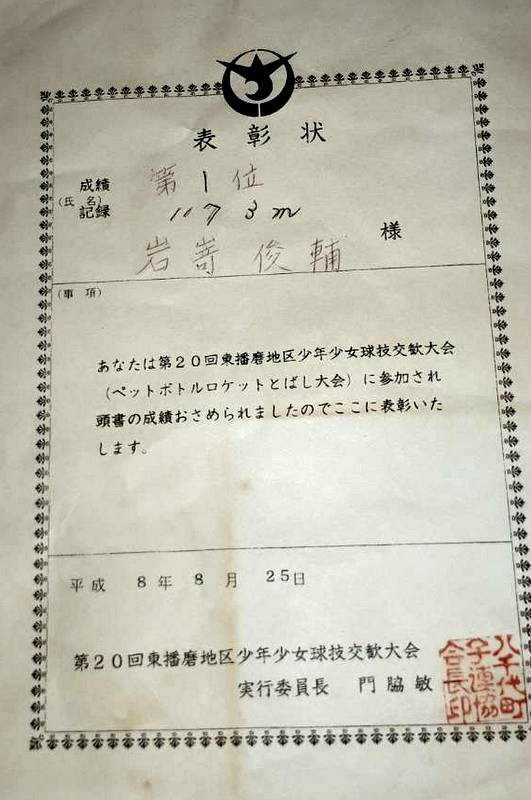 表彰状
成績 第1位
(氏名)
記録 117 3m
岩嵜 俊輔 様
(事 項)
あなたは第20回東播磨地区少年少女球技交歓大会
(ペットボトルロケットとばし大会)に参加され
頭書の成績おさめられましたのでここに表彰いた
します。
平成 8年 8月 25日
第20回東播磨地区少年少女球技交歓大会
実行委員長 門脇 敏
八千代町
子連協
会長印